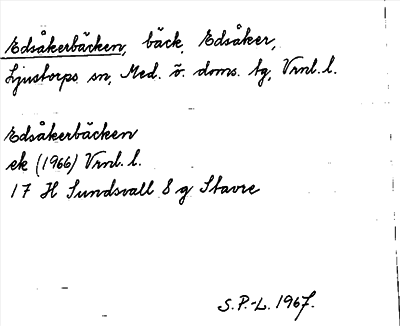 Edsåkerbäcken, bäck, Edsåker,
Ljustorps sn, Med. ö. doms. tg, Vrnl. l.
Edsåkerbäcken
ek (1966) Vrnl. l.
17 H Sundsvall 8 g Stavre
S.P.-L. 1967.